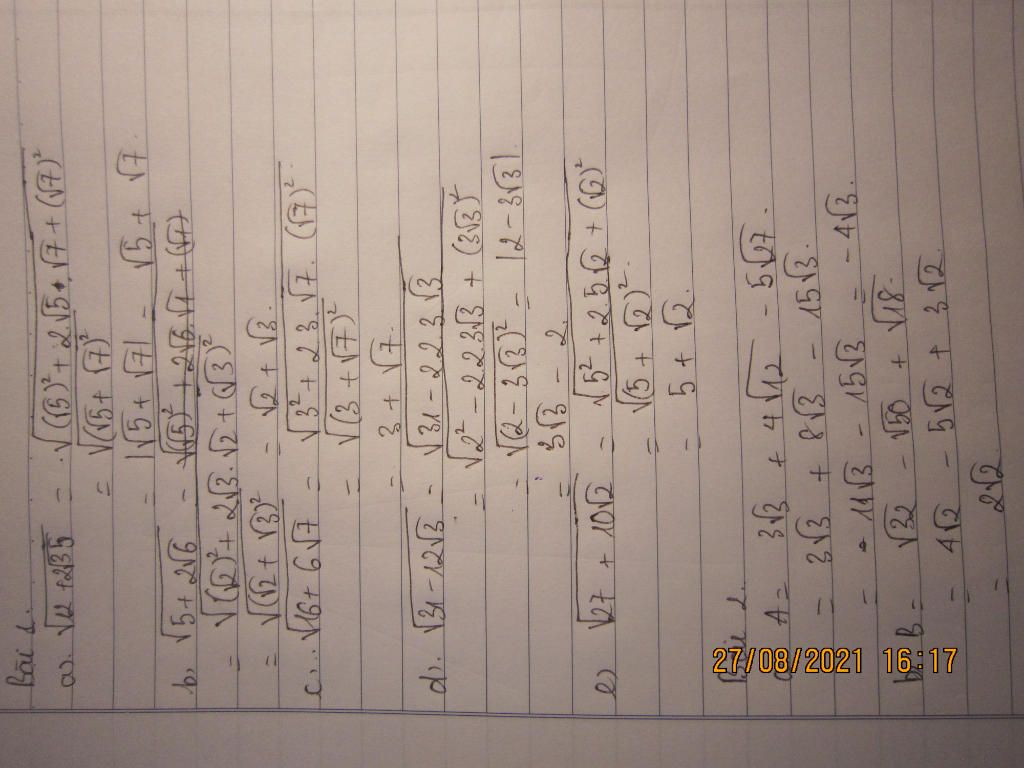 Bài 1.
a). √12 + 2√35 = √(√5)² + 2√5.√7 + (√7)²
= √(√5 + √7)²
= |√5 + √7| = √5 + √7
b, √5 + 2√6 =
= √(√2)² + 2√3.√2 + (√3)²
= √(√2 + √3)² = √2 + √3.
c). √16 + 6√7 = √3² + 2 3 √7. (√7)².
= √(3 + √7)²
= 3 + √7.
d). √31 - 12√3 = √31 - 2 2 3 √3
= √2² - 2 2 3√3 + (3√3)²
= √(2 - 3√3)² = |2 - 3√3|.
= 3√3 - 2
e) √27 + 10√2 = √5² + 2 5 √2 + (√2)²
= √(5 + √2)².
= 5 + √2.
Bài 2.
a, A = 3√3 + 4√12 - 5√27.
= 3√3 + 8√3 - 15√3.
= 11√3 - 15√3 = -4√3.
b, B = √32 - √50 + √18.
= 4√2 - 5√2 + 3√2
= 2√2
27/08/2021 16:17